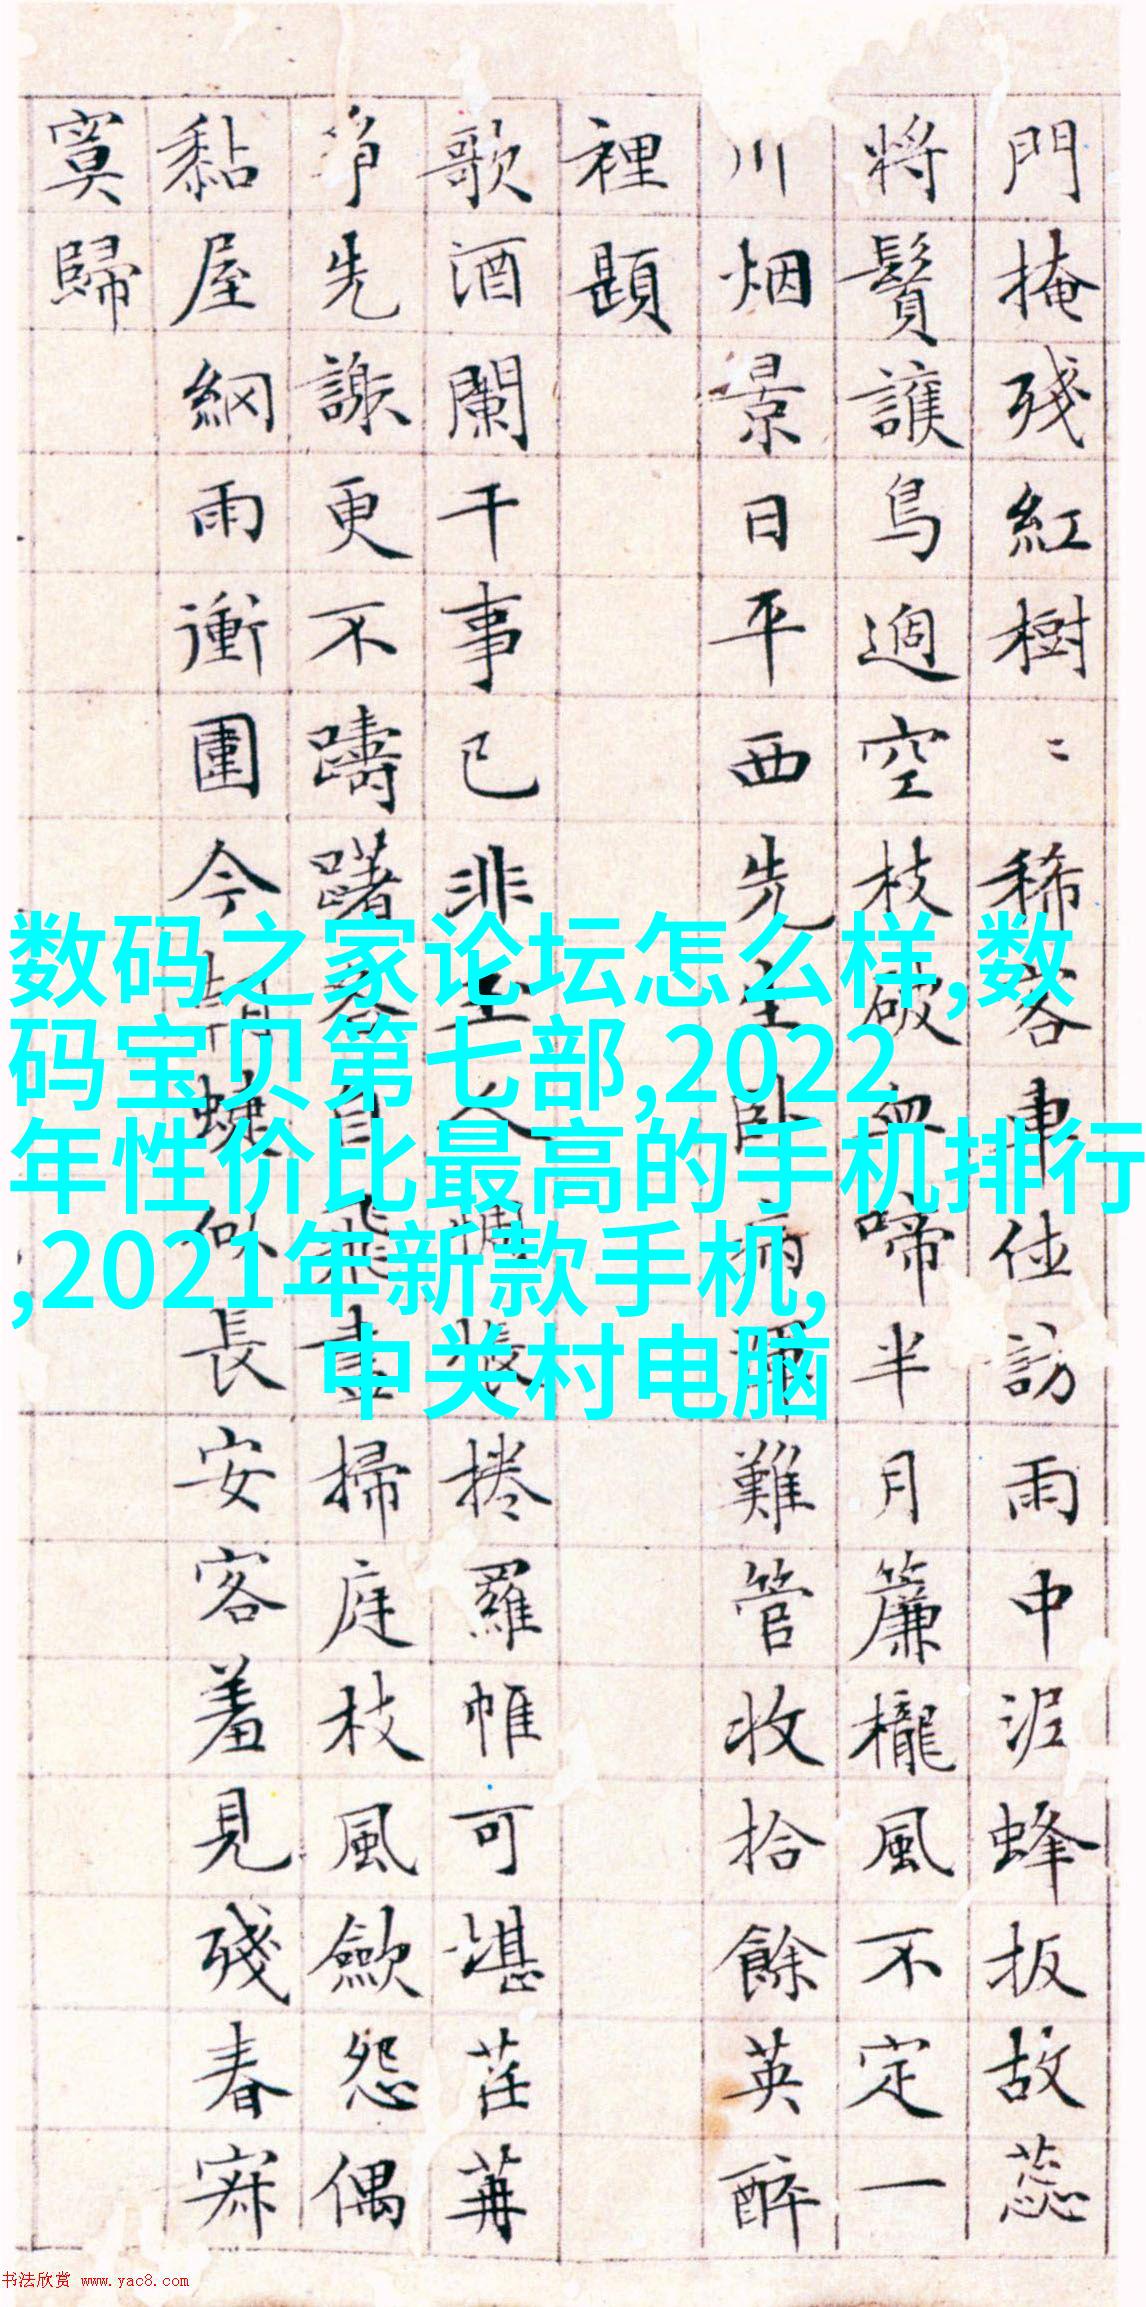 門掩殘紅樹〻稀客車訪雨中泥蜂扳故蕊
將鬢護鳥過空枝破血啼半月簾櫳風不定一
川烟景日平西先生卧病難管收拾餘英醉
裡題
歌酒闌干事已非主人惆悵捲羅帷可堪荏苒
爭先謝更不躊躇各自飛晝掃庭枝風歛怨偶
黏屋網雨衝圍今朝蝶似長安客羞見殘春寂
寞歸
数码之家论坛怎么样,数
码宝贝第七部,2022
年性价比最高的手机排行
,2021年新款手机,
中关村电脑
书法欣赏 www.yac8.com